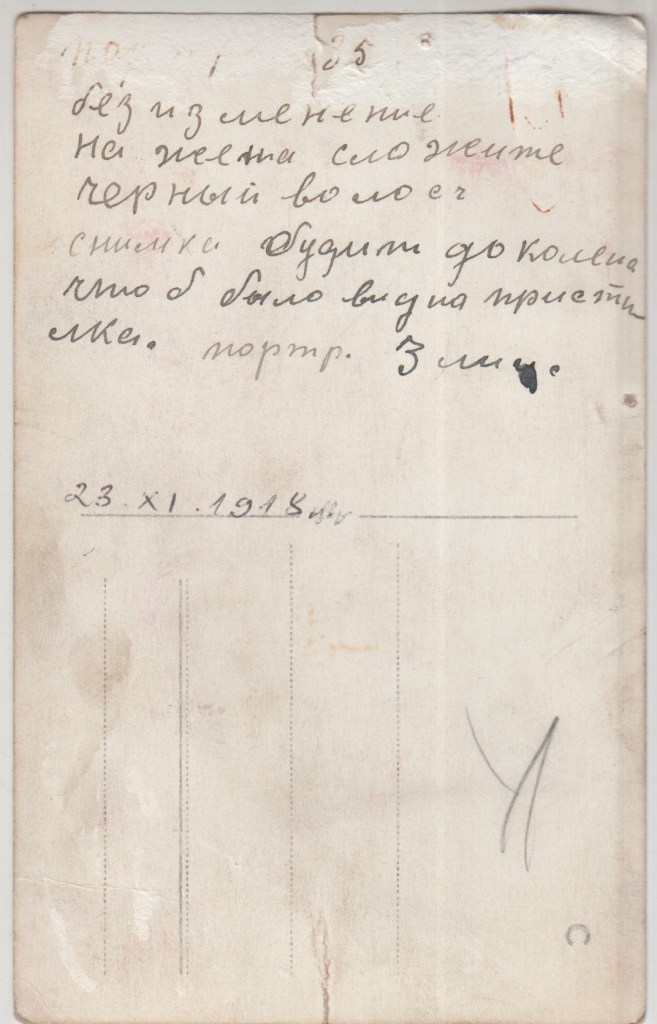 35
без изменение
на жена сложите
черный волосч
снимка будит до колена
чтоб было видна присти
лка. портр. 3 лица.
23.XI.1918